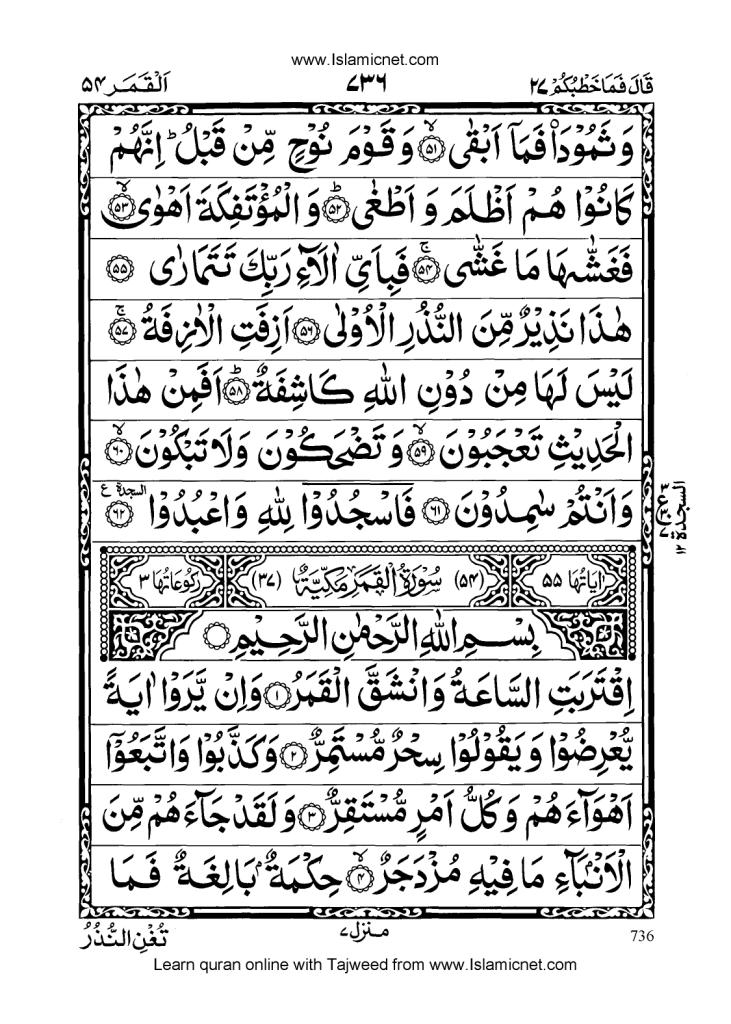 www.Islamicnet.com
قَالَ فَمَاخَطْبُكُمْ ٢٧
٧٣٦
اَلْقَمَر ٥٤
وَ ثَمُوْدَا۠ فَمَاۤ اَبْقٰى ۙ‏﴿۵۱﴾ وَ قَوْمَ نُوْحٍ مِّنْ قَبْلُ ؕ اِنَّهُمْ
كَانُوْا هُمْ اَظْلَمَ وَ اَطْغٰى ؕ‏﴿۵۲﴾ وَ الْمُؤْتَفِكَةَ اَهْوٰى ۙ‏﴿۵۳﴾
فَغَشّٰىهَا مَا غَشّٰى ۚ‏﴿۵۴﴾ فَبِاَيِّ اٰلَآءِ رَبِّكَ تَتَمَارٰى ‏﴿۵۵﴾
هٰذَا نَذِيْرٌ مِّنَ النُّذُرِ الْاُوْلٰى ‏﴿۵۶﴾ اَزِفَتِ الْاٰزِفَةُ ۚ‏﴿۵۷﴾
لَيْسَ لَهَا مِنْ دُوْنِ اللّٰهِ كَاشِفَةٌ ؕ‏﴿۵۸﴾ اَفَمِنْ هٰذَا
الْحَدِيْثِ تَعْجَبُوْنَ ۙ‏﴿۵۹﴾ وَ تَضْحَكُوْنَ وَلَا تَبْكُوْنَ ۙ‏﴿۶۰﴾
وَ اَنْتُمْ سٰمِدُوْنَ ‏﴿۶۱﴾ فَاسْجُدُوْا لِلّٰهِ وَ اعْبُدُوْا ‏﴿۶۲﴾ السجدة ع
السجدة ١٢
اٰيَاتُهَا ٥٥
(٥٤) سُوْرَةُ الْقَمَرِ مَكِّيَّةٌ (٣٧)
رُكُوْعَاتُهَا ٣
بِسْمِ اللّٰهِ الرَّحْمٰنِ الرَّحِيْمِ
اِقْتَرَبَتِ السَّاعَةُ وَ انْشَقَّ الْقَمَرُ ‏﴿۱﴾ وَ اِنْ يَّرَوْا اٰيَةً
يُّعْرِضُوْا وَ يَقُوْلُوْا سِحْرٌ مُّسْتَمِرٌّ ‏﴿۲﴾ وَ كَذَّبُوْا وَ اتَّبَعُوْۤا
اَهْوَآءَهُمْ وَ كُلُّ اَمْرٍ مُّسْتَقِرٌّ ‏﴿۳﴾ وَ لَقَدْ جَآءَهُمْ مِّنَ
الْاَنْۢبَآءِ مَا فِيْهِ مُزْدَجَرٌ ۙ‏﴿۴﴾ حِكْمَةٌۢ بَالِغَةٌ فَمَا
736
منزل ٧
تُغْنِ النُّذُرُ
Learn quran online with Tajweed from www.Islamicnet.com